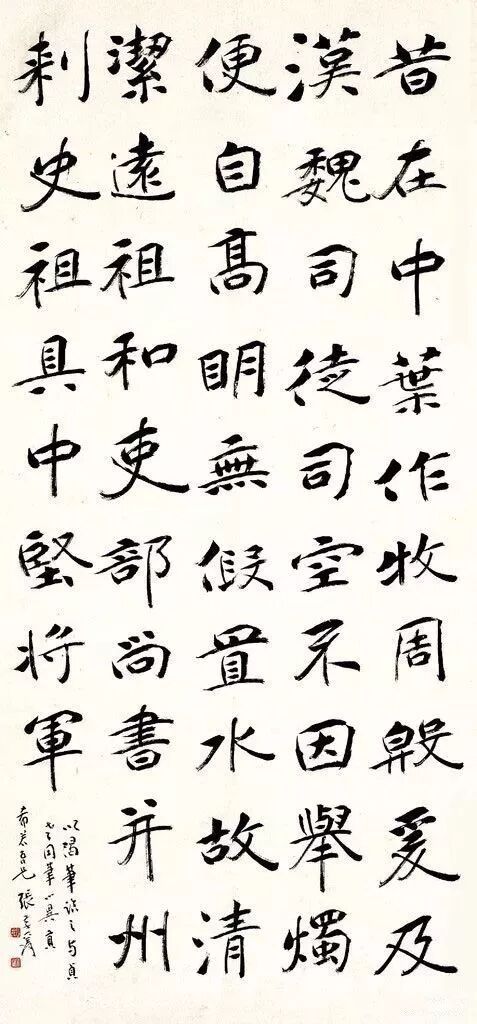 昔在中葉作牧周殷爰及
漢魏司徒司空不因舉燭
便自髙眀無假置水故清
潔遠祖和吏部尚書并州
刺史祖具中堅將軍
以渴筆臨之与
同筆
張爰